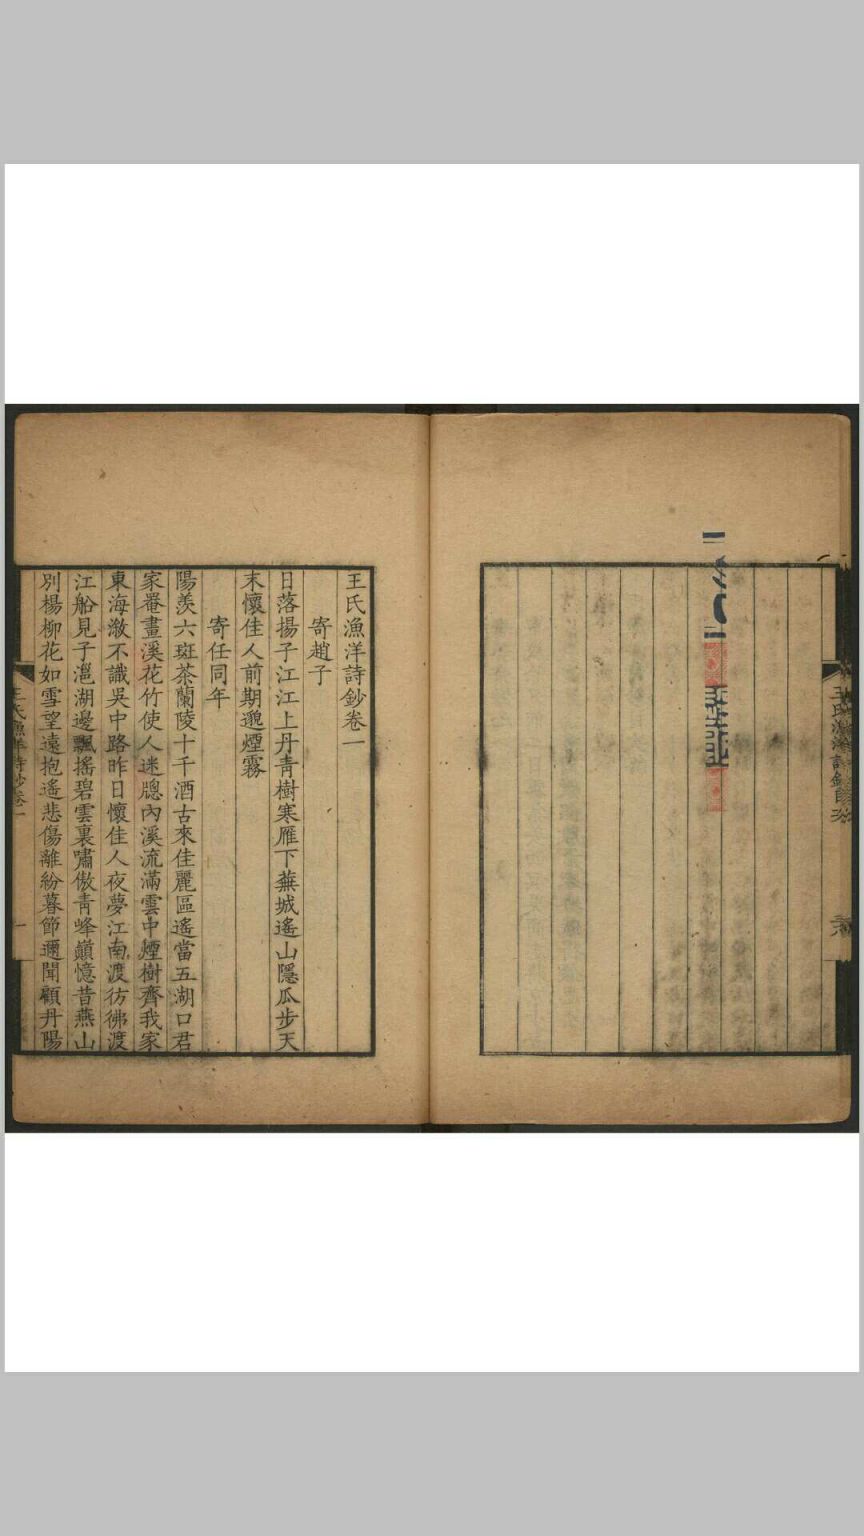 王氏漁洋詩鈔卷一
寄趙子
日落揚子江江上丹青樹寒雁下蕪城遙山隱瓜步天
末懷佳人前期邈煙霧
寄任同年
陽羨六斑茶蘭陵十千酒古來佳麗區遙當五湖口君
家罨畫溪花竹使人迷牎內溪流滿雲中煙樹齊我家
東海澂不識吳中路昨日懷佳人夜夢江南渡彷彿渡
江船見子滆湖邊飄搖碧雲裏嘯傲青峰巔憶昔燕山
別楊柳花如雪望遠抱遙悲傷離紛暮節邇聞顧丹陽
王氏漁洋詩鈔卷一
一